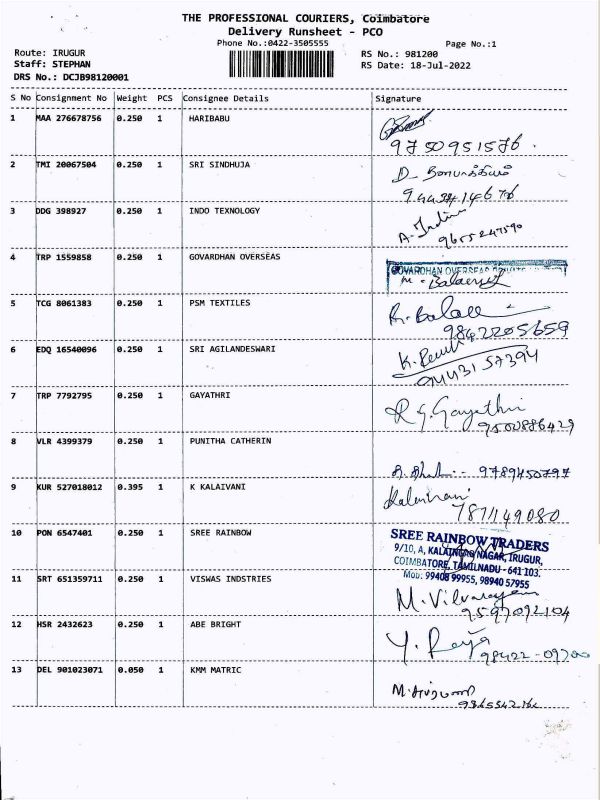 THE PROFESSIONAL COURIERS, Coimbatore
Delivery Runsheet - PCO
Phone No.:0422-3505555
Page No.:1
Route: IRUGUR
RS No.: 981200
Staff: STEPHAN
RS Date: 18-Jul-2022
DRS No.: DCJB98120001
S No Consignment No Weight PCS Consignee Details Signature
1 MAA 276678756 0.250 1 HARIBABU
9750951576.
2 TMI 20067504 0.250 1 SRI SINDHUJA
D-
3 DDG 398927 0.250 1 INDO TEXNOLOGY
A. India
9655247590
4 TRP 1559858 0.250 1 GOVARDHAN OVERSEAS
GOVARDHAN OVERSEAS PRIVATE
5 TCG 8061383 0.250 1 PSM TEXTILES
R. Balaee
9842205659
6 EDQ 16540096 0.250 1 SRI AGILANDESWARI
K.
9443157394
7 TRP 7792795 0.250 1 GAYATHRI
R G. Gayathri
9500886429
8 VLR 4399379 0.250 1 PUNITHA CATHERIN
9789450797
9 KUR 527018012 0.395 1 K KALAIVANI
Kalaivani
7871149080
10 PON 6547401 0.250 1 SREE RAINBOW
SREE RAINBOW TRADERS
9/10, A, KALAINGAR NAGAR, IRUGUR,
COIMBATORE, TAMILNADU - 641 103.
Mob: 99408 99955, 98940 57955
11 SRT 651359711 0.250 1 VISWAS INDSTRIES
M. Vilvarayan
9597092104
12 HSR 2432623 0.250 1 ABE BRIGHT
Y. Raja
98422-09700
13 DEL 901023071 0.050 1 KMM MATRIC